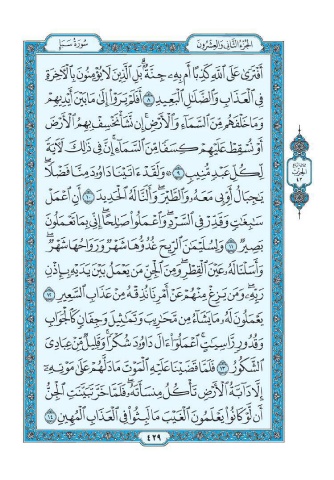 الجزء الثاني والعشرون
سورة سبإ
أَفْتَرَىٰ عَلَى ٱللَّهِ كَذِبًا أَم بِهِۦ جِنَّةٌۢ ۗ بَلِ ٱلَّذِينَ لَا يُؤْمِنُونَ بِٱلْـَٔاخِرَةِ
فِى ٱلْعَذَابِ وَٱلضَّلَـٰلِ ٱلْبَعِيدِ ٨ أَفَلَمْ يَرَوْا۟ إِلَىٰ مَا بَيْنَ أَيْدِيهِمْ
وَمَا خَلْفَهُم مِّنَ ٱلسَّمَآءِ وَٱلْأَرْضِ ۚ إِن نَّشَأْ نَخْسِفْ بِهِمُ ٱلْأَرْضَ
أَوْ نُسْقِطْ عَلَيْهِمْ كِسَفًا مِّنَ ٱلسَّمَآءِ ۚ إِنَّ فِى ذَٰلِكَ لَـَٔايَةً
لِّكُلِّ عَبْدٍ مُّنِيبٍ ٩ ۞ وَلَقَدْ ءَاتَيْنَا دَاوُۥدَ مِنَّا فَضْلًا ۖ
يَـٰجِبَالُ أَوِّبِى مَعَهُۥ وَٱلطَّيْرَ ۖ وَأَلَنَّا لَهُ ٱلْحَدِيدَ ١٠ أَنِ ٱعْمَلْ
سَـٰبِغَـٰتٍ وَقَدِّرْ فِى ٱلسَّرْدِ ۖ وَٱعْمَلُوا۟ صَـٰلِحًا ۖ إِنِّى بِمَا تَعْمَلُونَ
بَصِيرٌ ١١ وَلِسُلَيْمَـٰنَ ٱلرِّيحَ غُدُوُّهَا شَهْرٌ وَرَوَاحُهَا شَهْرٌ ۖ
وَأَسَلْنَا لَهُۥ عَيْنَ ٱلْقِطْرِ ۖ وَمِنَ ٱلْجِنِّ مَن يَعْمَلُ بَيْنَ يَدَيْهِ بِإِذْنِ
رَبِّهِۦ ۖ وَمَن يَزِغْ مِنْهُمْ عَنْ أَمْرِنَا نُذِقْهُ مِنْ عَذَابِ ٱلسَّعِيرِ ١٢
يَعْمَلُونَ لَهُۥ مَا يَشَآءُ مِن مَّحَـٰرِيبَ وَتَمَـٰثِيلَ وَجِفَانٍ كَٱلْجَوَابِ
وَقُدُورٍ رَّاسِيَـٰتٍ ۚ ٱعْمَلُوٓا۟ ءَالَ دَاوُۥدَ شُكْرًا ۚ وَقَلِيلٌ مِّنْ عِبَادِىَ
ٱلشَّكُورُ ١٣ فَلَمَّا قَضَيْنَا عَلَيْهِ ٱلْمَوْتَ مَا دَلَّهُمْ عَلَىٰ مَوْتِهِۦٓ
إِلَّا دَآبَّةُ ٱلْأَرْضِ تَأْكُلُ مِنسَأَتَهُۥ ۖ فَلَمَّا خَرَّ تَبَيَّنَتِ ٱلْجِنُّ
أَن لَّوْ كَانُوا۟ يَعْلَمُونَ ٱلْغَيْبَ مَا لَبِثُوا۟ فِى ٱلْعَذَابِ ٱلْمُهِينِ ١٤
٤٢٩